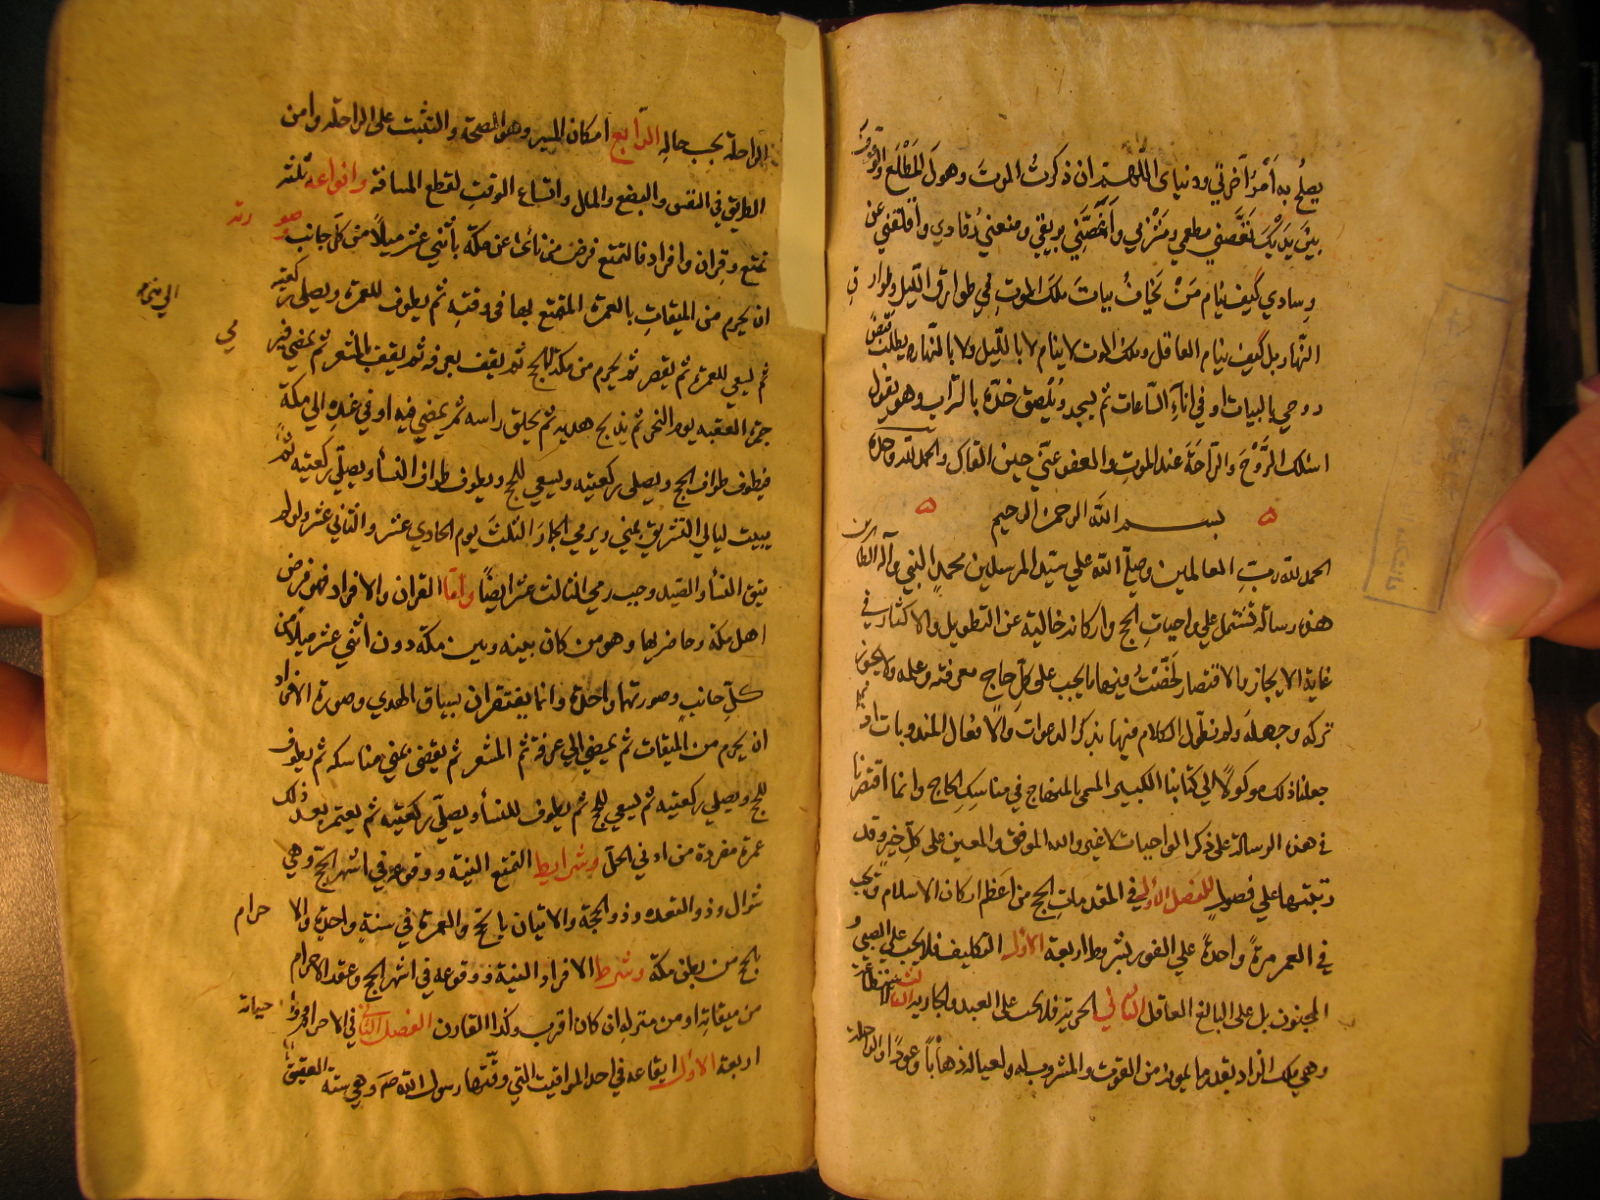 يصلح به أمر آخرتي ودنياي اللهم ان ذكرت الموت وهول المطلع والوقوف
بين يديك نغصني مطعمي ومشربي وأغصني بريقي ومنعني رقادي وأقلقني عن
وسادي كيف ينام من يخاف بيات ملك الموت في طوارق الليل وطوارق
النهار بل كيف ينام العاقل وملك الموت لا ينام لا بالليل ولا بالنهار يطلب قبض
روحي بالبيات او في اناء الساعات ثم يسجد ويلصق خده بالتراب وهو يقول
اسئلك الروح والراحة عند الموت والعفو عني حين القاك والحمد لله وحده
بسم الله الرحمن الرحيم
الحمد لله رب العالمين وصلى الله على سيد المرسلين محمد النبي وآله الطاهرين
هذه رسالة تشتمل على واجبات الحج واركانه خالية عن التطويل والاكثار في
غاية الايجاز والاقتصار لخصت فيها ما يجب على كل حاج معرفته وعلمه ولا يجوز
تركه وجهله ولم نطول الكلام فيها بذكر الدعوات والافعال المندوبات اذ
جعلنا ذلك موكولا الى كتابنا الكبير المسمى بالمنهاج في مناسك الحاج وانما اقتصرنا
في هذه الرسالة على ذكر الواجبات لا غير والله الموفق والمعين على كل خير وقد
رتبتها على فصول الفصل الأول في المقدمات الحج من اعظم اركان الاسلام ويجب
في العمر مرة واحدة على الفور بشروط اربعة الاول التكليف فلا يجب على الصبي و
المجنون بل على البالغ العاقل الثاني الحرية فلا يجب على العبد والجارية الثالث الاستطاعة
وهي ملك الزاد بقدر ما يمونه من القوت والمشروب له ولعياله ذهابا وعودا والراحلة
الراحلة يجب حاله الرابع امكان المسير وهو الصحة والتثبت على الراحلة وامن
الطريق في النفس والبضع والمال واتساع الوقت لقطع المسافة وانواعه ثلثة
تمتع وقران وافراد فالتمتع فرض من نأى عن مكة باثني عشر ميلا من كل جانب وصورته
ان يحرم من الميقات بالعمرة المتمتع بها في وقته ثم يطوف للعمرة ويصلي ركعتيه
ثم يسعى للعمرة ثم يقصر ثم يحرم من مكة للحج ثم يقف بعرفه ثم يقف بالمشعر ثم يمضي فيرمي
الى منى
جمرة العقبه يوم النحر ثم يذبح هديه ثم يحلق راسه ثم يمضي فيه او في غده الى مكة
فيطوف طواف الحج ويصلي ركعتيه ويسعى للحج ويطوف طواف النسأ ويصلي ركعتيه ثم
يبيت ليالي التشريق بمنى ويرمي الجمار الثلث يوم الحادي عشر والثاني عشر ولو لم
يتق النسأ والصيد وجب رمي الثالث عشر ايضا واما القران والافراد فهو فرض
اهل مكة وحاضريها وهو من كان بينه وبين مكة دون اثني عشر ميلا من
كل جانب وصورتهما واحدة وانما يفترقان بسياق الهدي وصورة الافراد
ان يحرم من الميقات ثم يمضي الى عرفة ثم المشعر ثم يقضي بمنى مناسكه ثم يطوف
للحج ويصلي ركعتيه ثم يسعى للحج ثم يطوف للنسأ ويصلي ركعتيه ثم يعتمر بعد ذلك
عمرة مفردة من ادنى الحل وشرايط التمتع النية ووقوعه في اشهر الحج وهي
شوال وذو القعده وذو الحجة والاتيان بالحج والعمرة في سنة واحدة والاحرام
بالحج من بطن مكة وشرط الافراد النية ووقوعه في اشهر الحج وعقد الاحرام
من ميقاته او من منزله ان كان اقرب وكذا القارن الفصل الثاني في الاحرام
اربعة الاول ايقاعه في احد المواقيت التي وقتها رسول الله ص وهي ستة العقيق